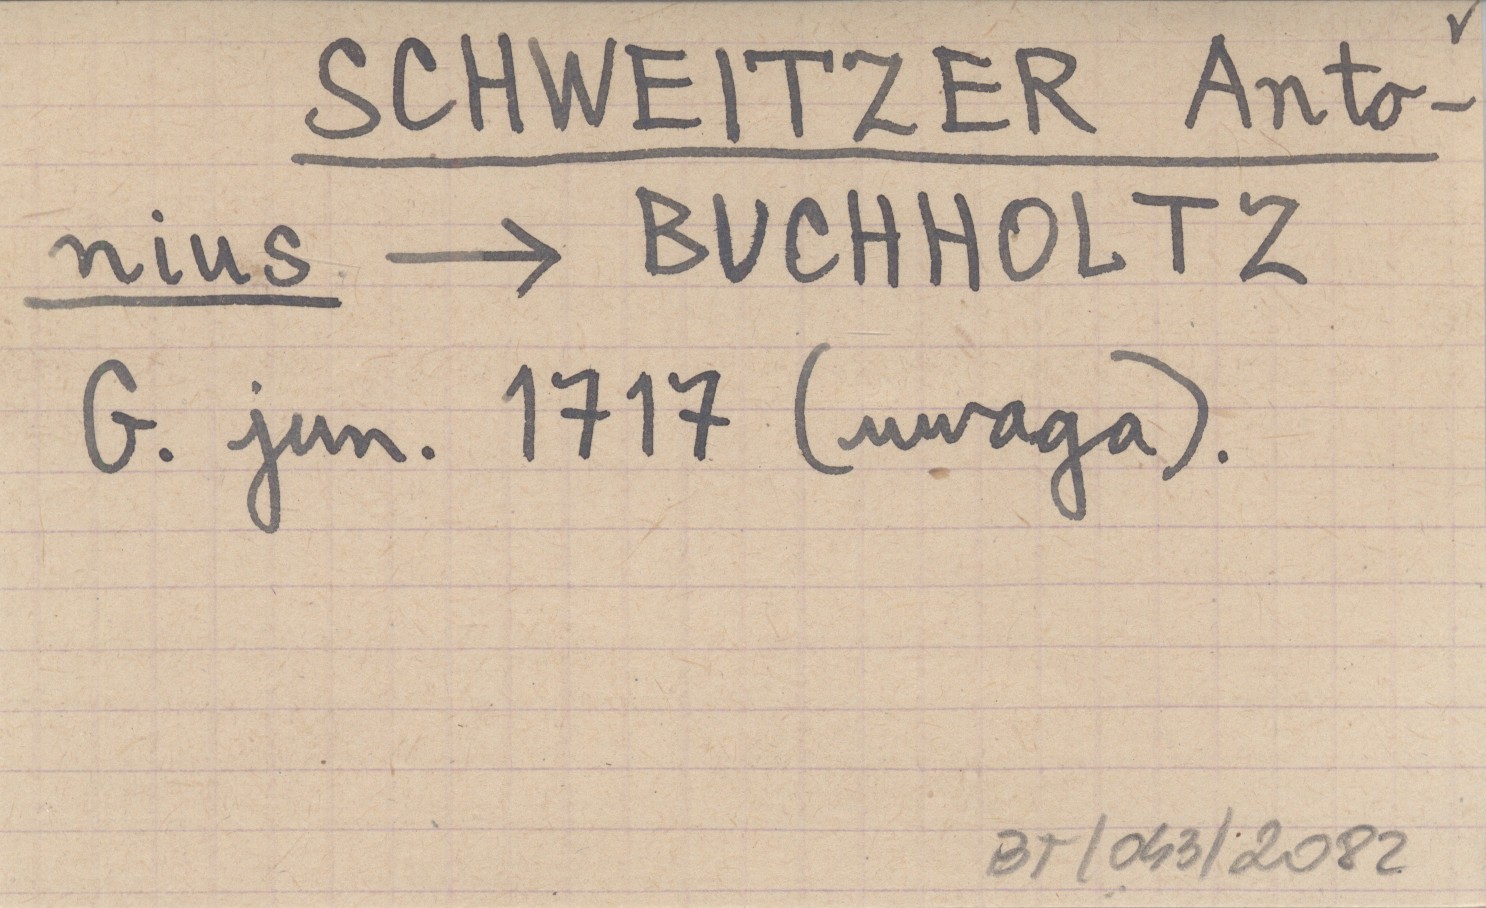 SCHWEITZER Anto-
nius → BUCHHOLTZ
G. jun. 1717 (uwaga).
BT/043/2082